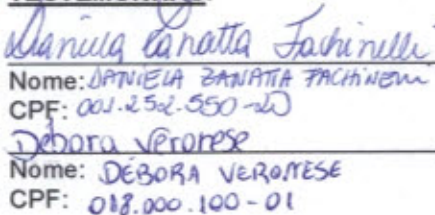 TESTEMUNHAS:
Daniela Zanatta Fachinelli
Nome: DANIELA ZANATTA FACHINELLI
CPF: 001.252.550-20
Débora Veronese
Nome: DÉBORA VERONESE
CPF: 018.000.100-01